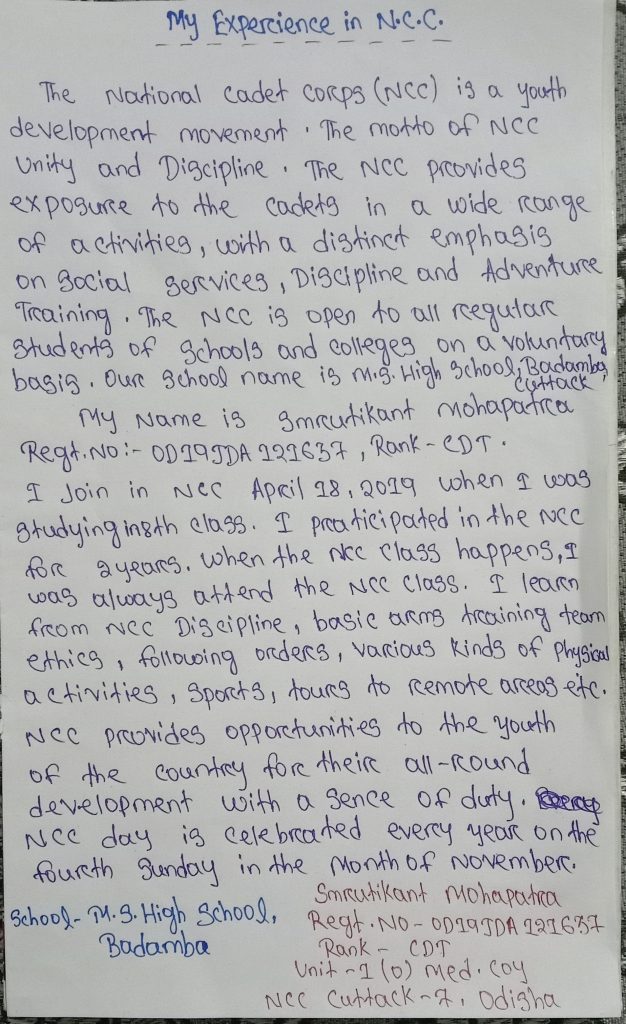 My Experience in N.C.C.
The National Cadet Corps (NCC) is a youth
development movement. The motto of NCC
Unity and Discipline. The NCC provides
exposure to the cadets in a wide range
of activities, with a distinct emphasis
on Social services, Discipline and Adventure
Training. The NCC is open to all regular
Students of Schools and colleges on a voluntary
basis. Our School name is M.S. High School, Badamba,
Cuttack
My Name is Smrutikant Mohapatra
Regt. No:- OD19JDA121637, Rank - CDT.
I Join in NCC April 18, 2019 when I was
studying in 8th class. I praticipated in the NCC
for 2 years. When the NCC class happens, I
was always attend the NCC class. I learn
from NCC Discipline, basic arms training team
ethics, following orders, various kinds of Physical
activities, Sports, tours to remote areas etc.
NCC provides opportunities to the youth
of the country for their all-round
development with a sence of duty.
NCC day is celebrated every year on the
fourth Sunday in the Month of November.
School- M.S. High School,
Badamba
Smrutikant Mohapatra
Regt. NO - OD19JDA121637
Rank - CDT
Unit - 1 (O) Med. Coy
NCC Cuttack-7, Odisha